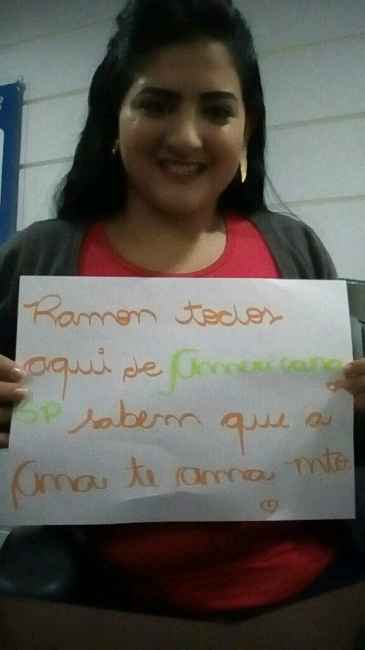 Ramon todos
aqui de Americana
SP sabem que a
Ana te ama mto